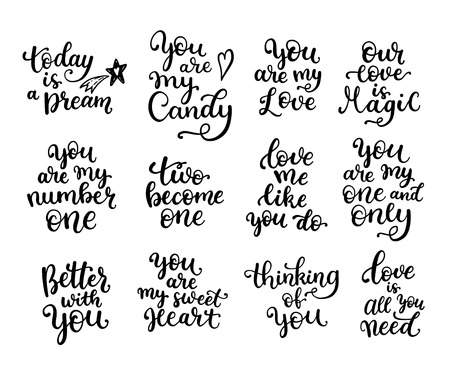 Today
is
a Dream
You
are
my
Candy
You
are my
Love
Our
Love
is
Magic
You
are my
number
one
two
become
one
love
me
like
you do
You
are my
one and
only
Better
with
You
You
are
my sweet
Heart
thinking
of
You
Love
is
all you
need